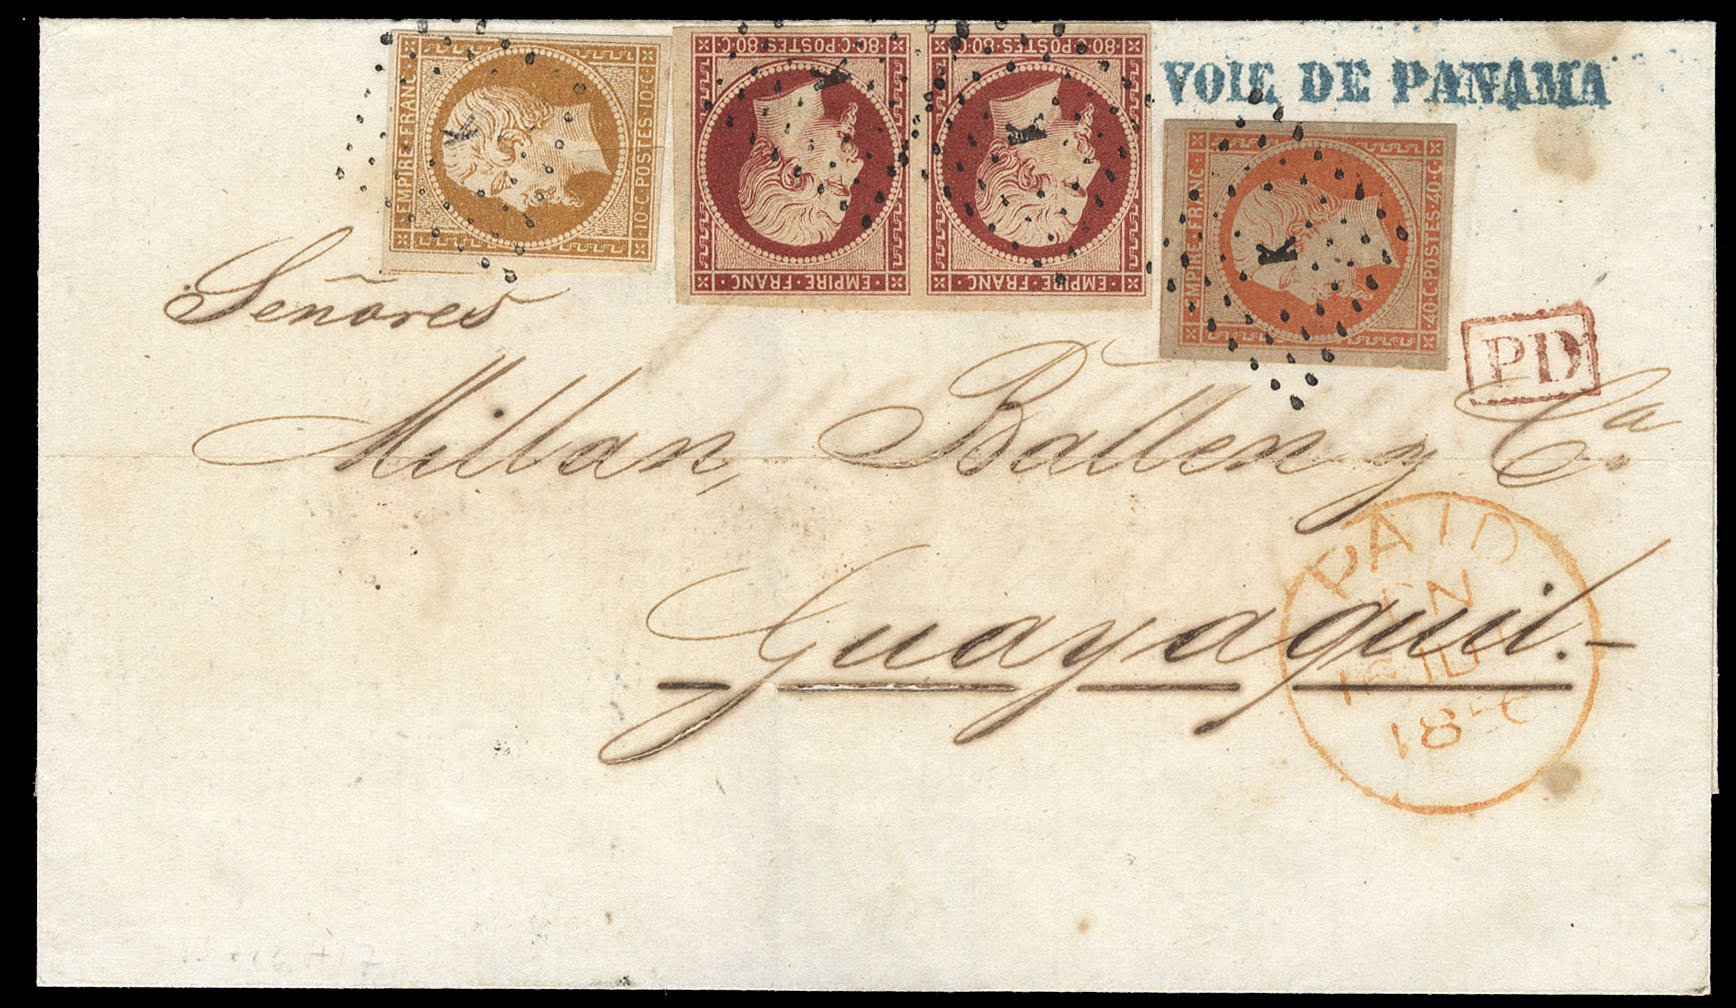 VOIE DE PANAMA
EMPIRE·FRANC·
·10·C·POSTES·10·C·
80·C·POSTES·80·C
EMPIRE·FRANC·
80·C·POSTES·80·C
EMPIRE·FRANC·
EMPIRE·FRANC·
40·C·POSTES·40·C·
K
K
K
K
PD
Señores
Millan, Ballen y Ca.
Guayaquil.
PAID
18